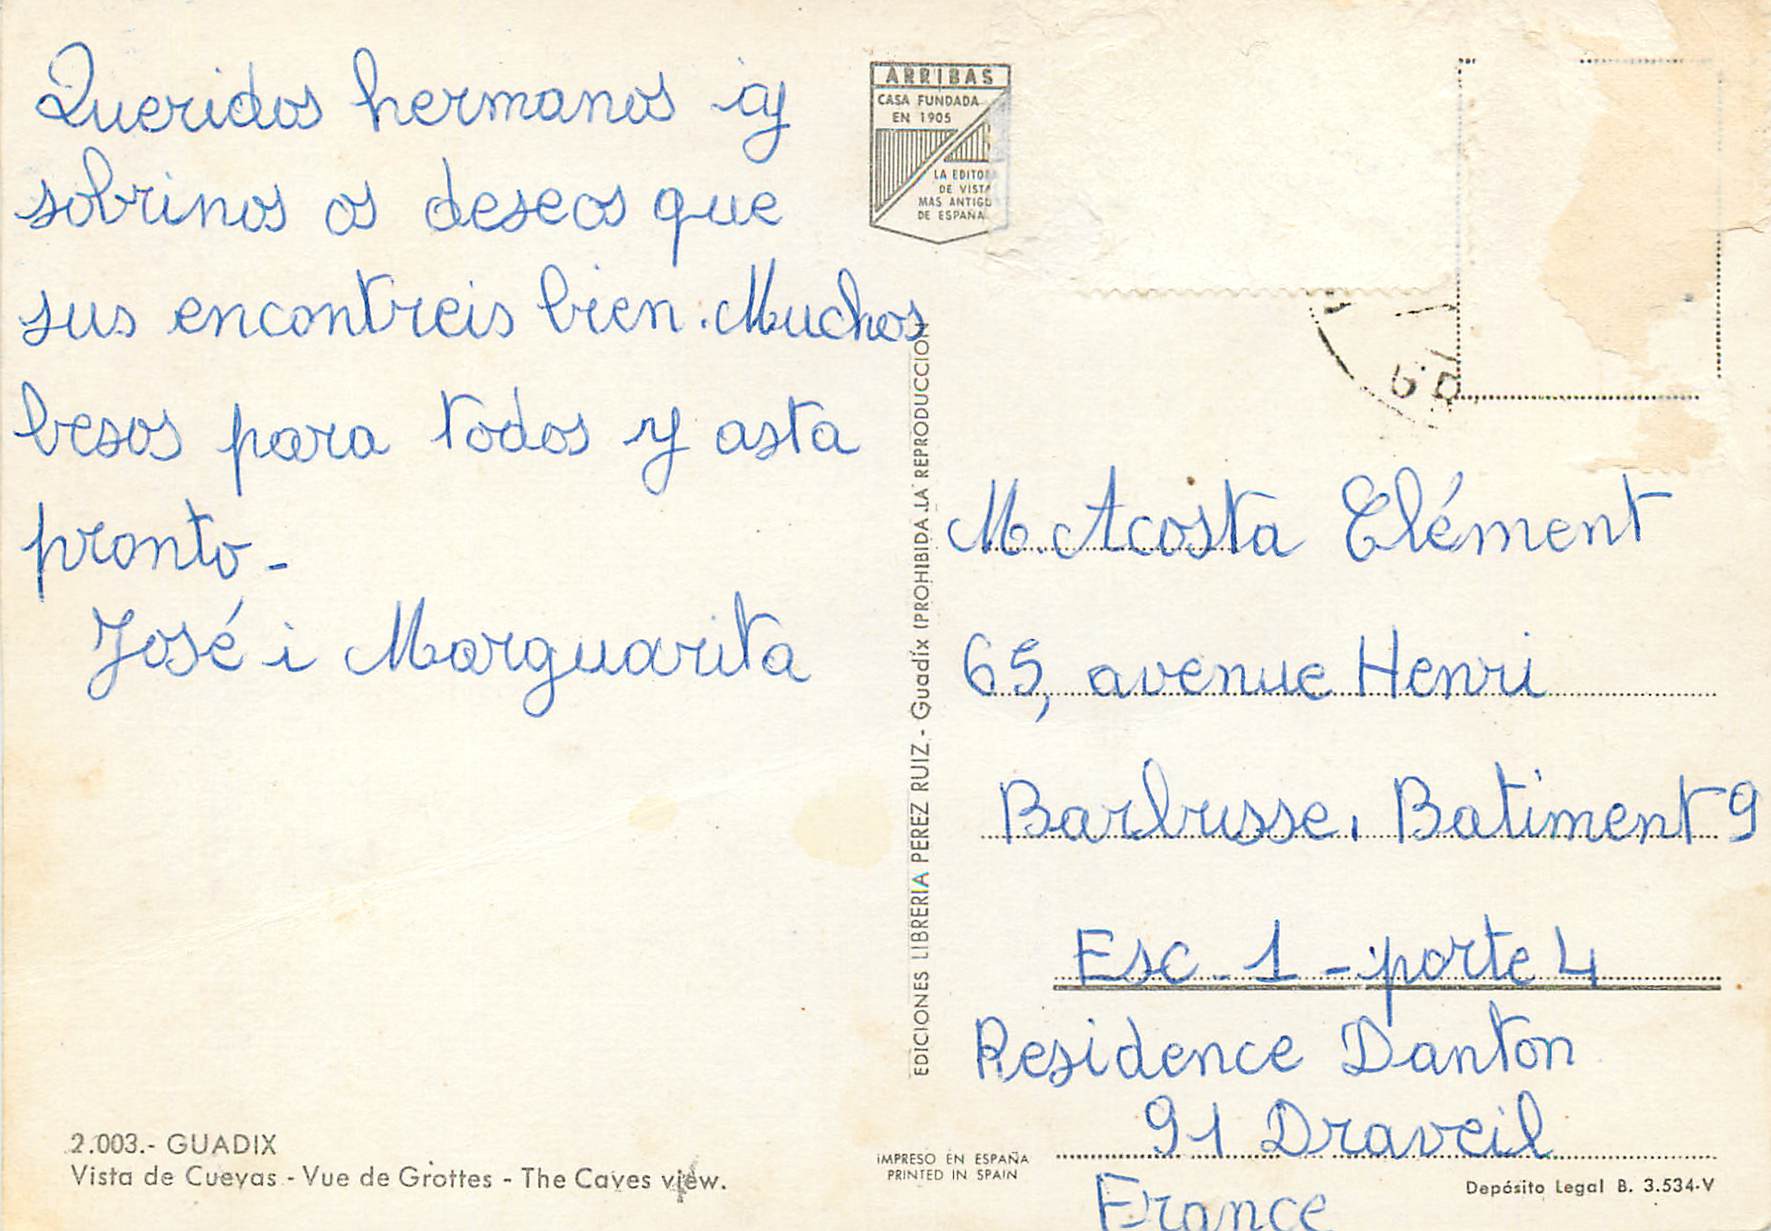 Queridos hermanos iy
sobrinos os deseos que
sus encontreis bien. Muchos
besos para todos y asta
pronto -
José i Marguarita
2.003.- GUADIX
Vista de Cuevas - Vue de Grottes - The Caves view.
ARRIBAS
CASA FUNDADA
EN 1905
LA EDITO
DE VISTA
MAS ANTIGU
DE ESPAÑA
EDICIONES LIBRERIA PEREZ RUIZ. - Guadix (PROHIBIDA LA REPRODUCCION
M. Acosta Clément
65, avenue Henri
Barbusse, Batiment 9
Esc - 1 - porte 4
Residence Danton
91 Draveil
France
IMPRESO EN ESPAÑA
PRINTED IN SPAIN
Depósito Legal B. 3.534-V